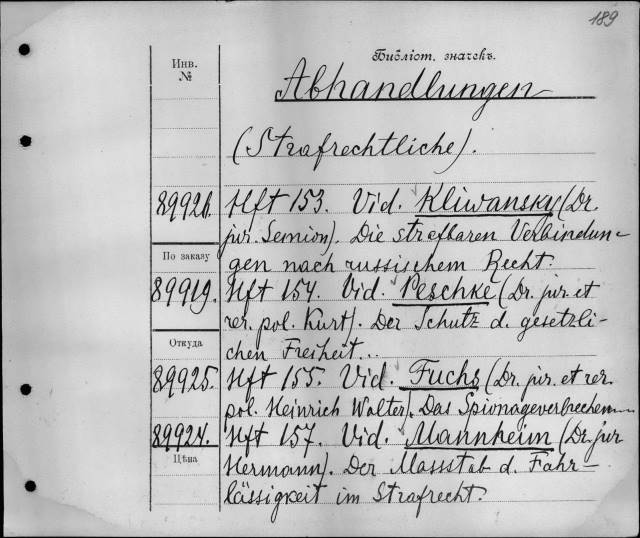 189
Инв.
№
Библіот. значекъ.
Abhandlungen
(Strafrechtliche).
89926. Hft 153. Vid. Kliwansky (Dr.
jur. Semion). Die strafbaren Verbindun-
По заказу
gen nach russischem Recht.
89919. Hft 154. Vid. Peschke (Dr. jur. et
rer. pol. Kurt). Der Schutz d. gesetzli-
Откуда
chen Freiheit...
89925. Hft 155. Vid. Fuchs (Dr. jur. et rer.
pol. Heinrich Walter). Das Spionageverbrechen
89924. Hft 157. Vid. Mannheim (Dr. jur
Цѣна
Hermann). Der Massstab d. Fahr-
lässigkeit im Strafrecht.